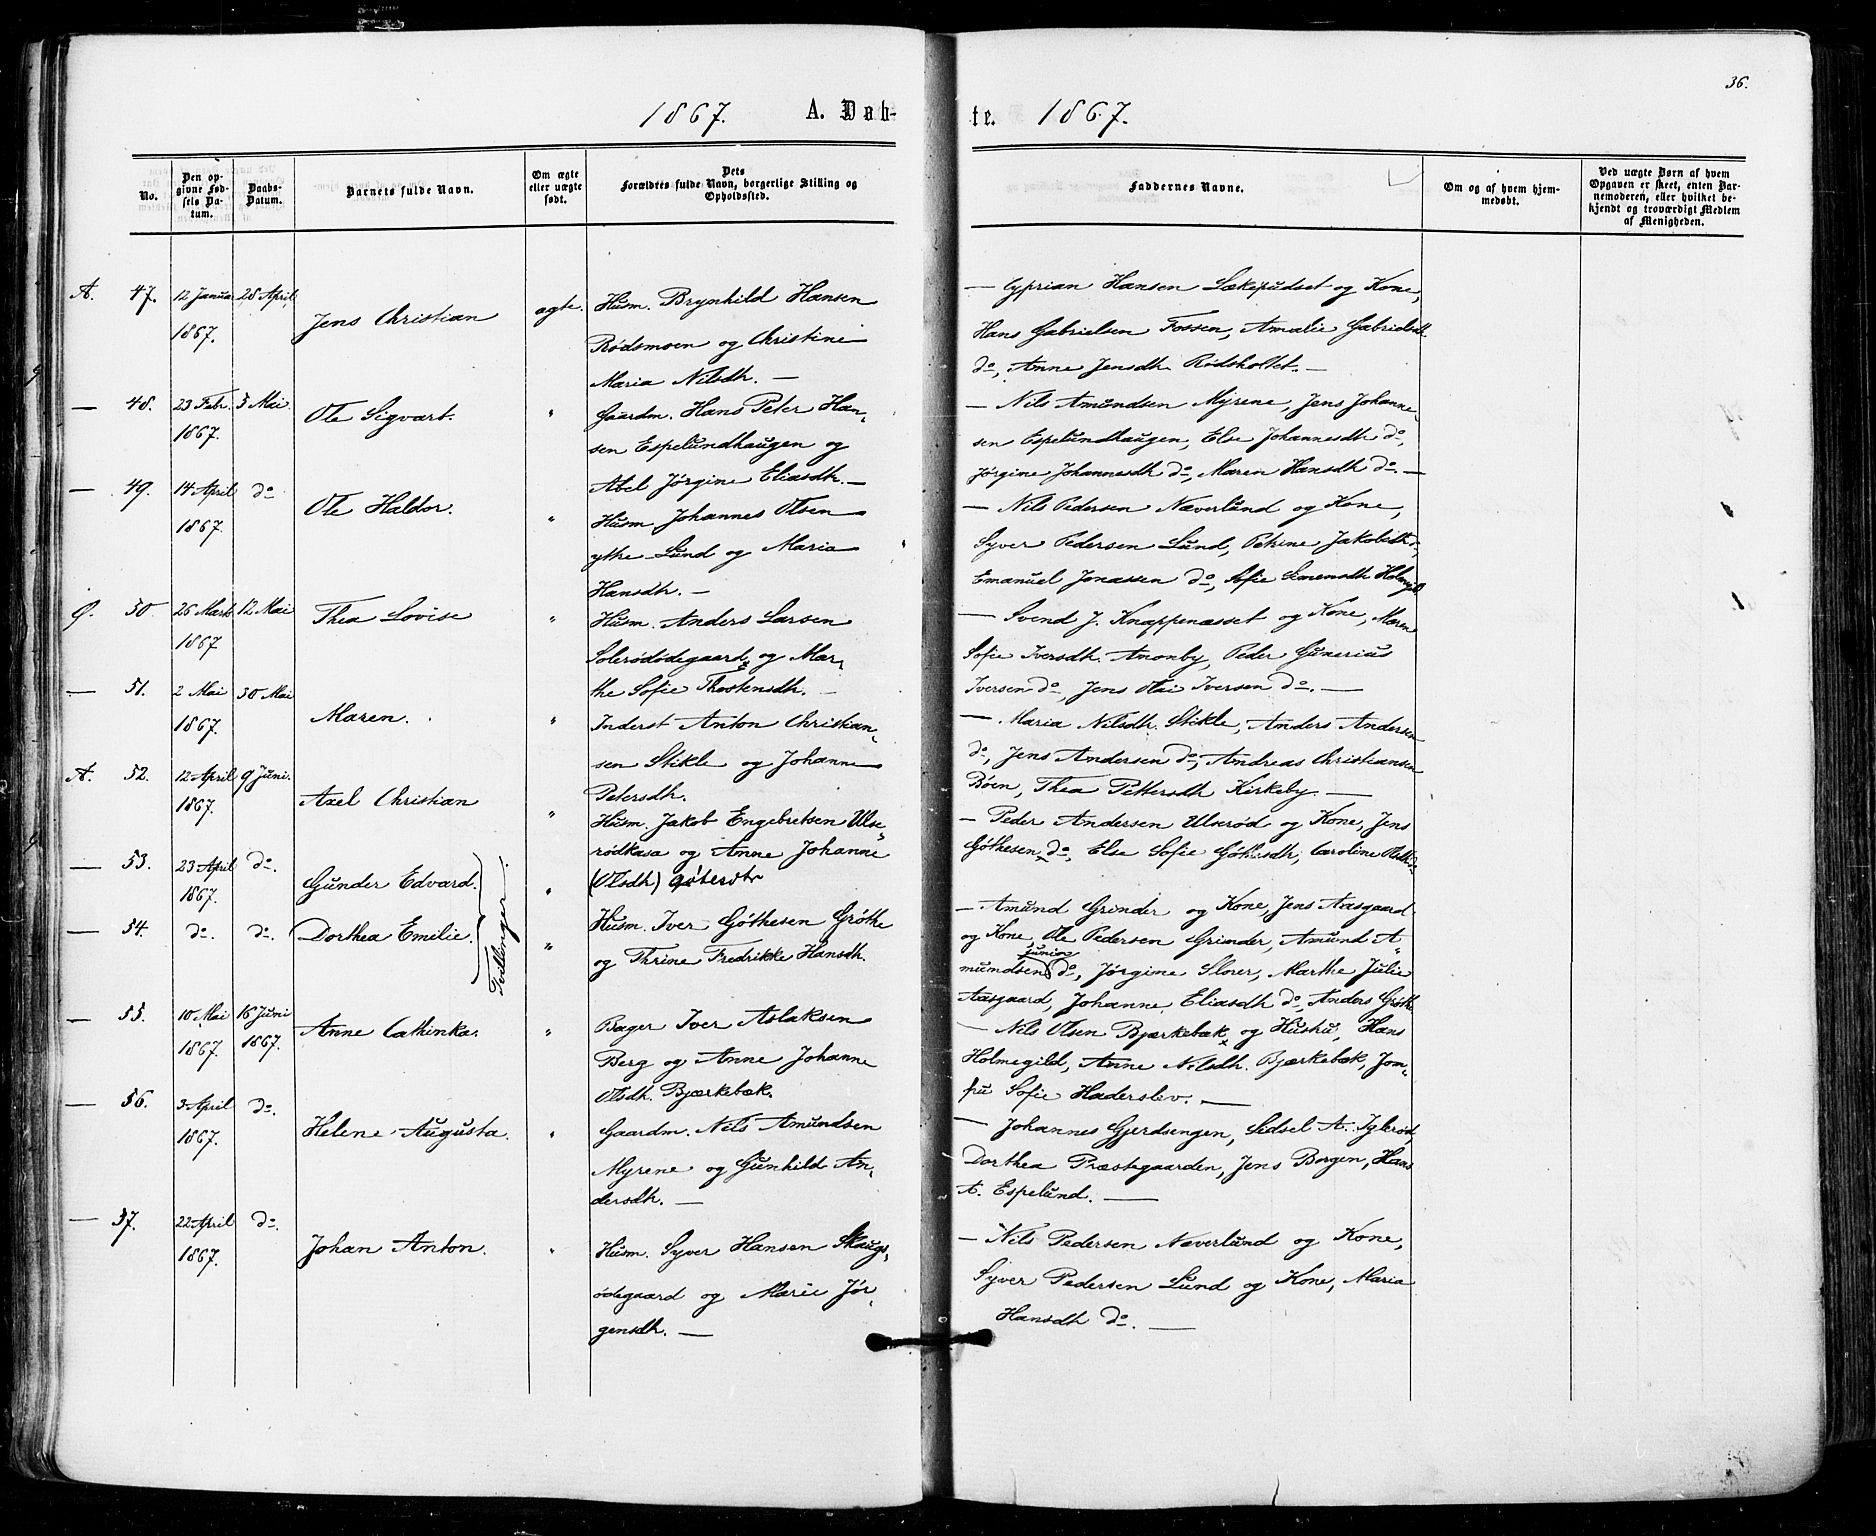 36.
1867. A. Døb-
te. 1867.
No.
Den op-
givne Fød-
sels Da-
tum.
Daabs-
Datum.
Barnets fulde Navn.
Om ægte
eller uægte
født.
Dets
Forældres fulde Navn, borgerlige Stilling og
Opholdssted.
Faddernes Navne.
Om og af hvem hjem-
medøbt.
Ved uægte Børn af hvem
Opgaven er skeet, enten Bar-
nemoderen, eller hvilket be-
kjendt og troværdigt Medlem
af Menigheden.
A. 47. 12 Januar 1867. 28 April Jens Christian ægte.
Husm. Brynhild Hansen
Rødsmoen og Christine
Maria Nilsdh. —
— Cyprian Hansen Lækepudset og Kone,
Hans Gabrielsen Fossen, Amalie Gabrielsdh
do, Anne Jensdh. Rødsholtet. —
— 48. 23 Febr. 1867. 5 Mai Ole Sigvart. "
Gaardm. Hans Peter Han-
sen Espelundhaugen og
Abel Jørgine Eliasdh. —
— Nils Amundsen Myrene, Jens Johanne-
sen Espelundhaugen, Else Johannesdh do,
Jørgine Johannesdh do, Maren Hansdh do. —
— 49. 14 April 1867. do Ole Haldor. "
Husm. Johannes Olsen
ythe Lund og Maria
Hansdh. —
— Nils Pedersen Næverlund og Kone,
Syver Pedersen Lund, Petrine Jakobsdh do,
Emanuel Jonassen do, Sofie Simensdh
Ø. 50 26 Marts 1867 12 Mai Thea Lovise "
Husm. Anders Larsen
Solerødødegaard og Mar-
the Sofie Thostensdh. —
— Svend J. Knappenæsset og Kone, Maren
Sofie Iversdh. Anonby, Peder Gunerius
Iversen do, Jens Oli Iversen do. —
— 51. 2 Mai 1867. 30 Mai Maren. "
Inderst Anton Christian-
sen Stikle og Johanne
Petersdh.
— Maria Nilsdh. Stikle, Anders Andersen
do, Jens Andersen do, Andreas Christiansen
Bøen, Thea Pettersdh Kirkeby. —
A. 52. 12 April 1867. 9 Juni. Axel Christian "
Husm. Jakob Engebretsen Ulse-
rødkasa og Anne Johanne
(Olsdh) Gøtesdtr
— Peder Andersen Ulserød og Kone, Jens
Gøthesen do, Else Sofie Gøthesdh, Caroline Olsdh do
— 53. 23 April 1867. do. Gunder Edvard. "
— 54. do. do. Dorthea Emilie. "
Tvillinger.
Husm. Iver Gøthesen Grøthe
og Thrine Fredrikke Hansdh.
— Amund Grinder og Kone, Jens Aasgaard
og Kone, Ole Pedersen Grinder, Amund A-
junior
mundsen do, Jørgine Slorer, Marthe Julie
Aasgaard, Johanne Eliasdh do, Anders Grøthe
— 55. 10 Mai 1867. 16 Juni 1867. Anne Cathinka. "
Bager Iver Aslaksen
Berg og Anne Johanne
Olsdh. Bjærkebæk.
— Nils Olsen Bjærkebæk og Hustru, Hans
Holmegild, Anne Nilsdh. Bjærkebæk, Jom-
fru Sofie Haderslev. —
— 56. 3 April 1867. do. Helene Augusta. "
Gaardm. Nils Amundsen
Myrene og Gunhild An-
dersdh. —
— Johannes Gjerdsengen, Sidsel A. Iglerød,
Dorthea Præstegaarden, Jens Borgen, Hans
A. Espelund. —
— 57. 22 April 1867. do. Johan Anton. "
Husm. Syver Hansen Skaugs-
ødegaard og Marie Jør-
gensdh. —
— Nils Pedersen Næverlund og Kone,
Syver Pedersen Lund og Kone, Maria
Hansdh do. —